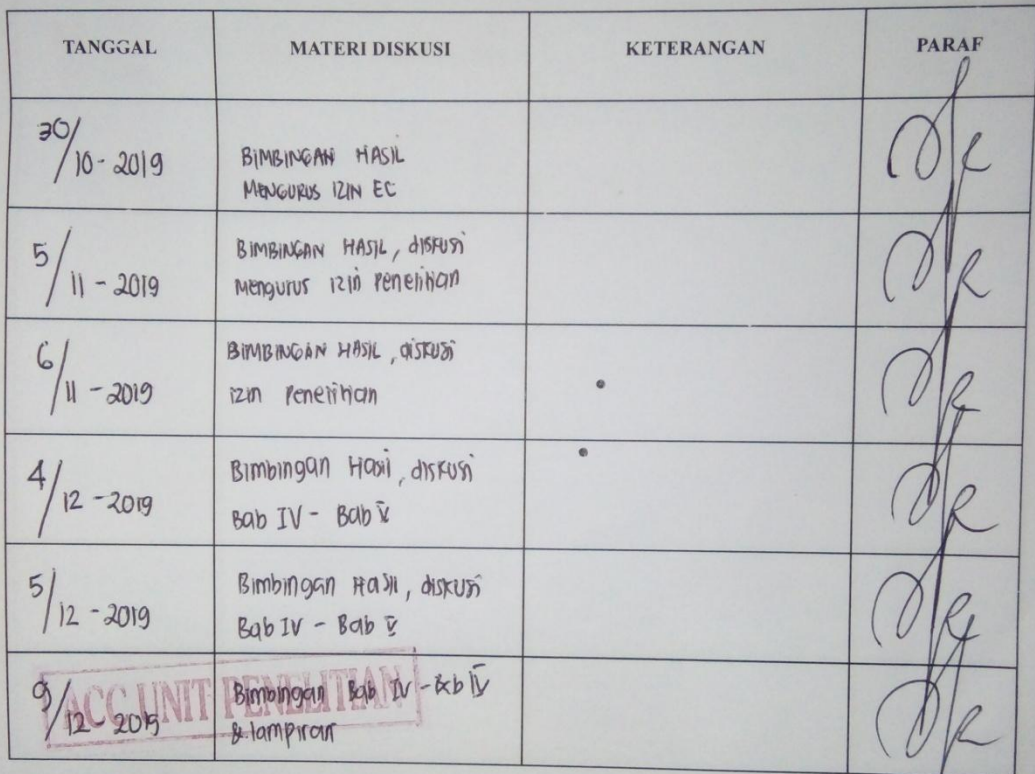 TANGGAL MATERI DISKUSI KETERANGAN PARAF
30/10-2019 BIMBINGAN HASIL
MENGURUS IZIN EC
5/11-2019 BIMBINGAN HASIL, diskusi
Mengurus izin Penelitian
6/11-2019 BIMBINGAN HASIL, diskusi
izin Penelitian
4/12-2019 Bimbingan Hasil, diskusi
Bab IV - Bab V
5/12-2019 Bimbingan Hasil, diskusi
Bab IV - Bab V
9/12-2019 Bimbingan Bab IV - Bab IV
& lampiran
ACC UNIT PENELITIAN